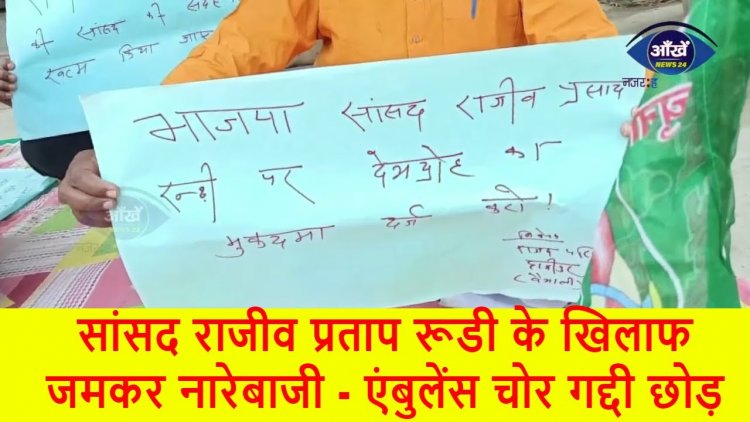 की सांसद की सदस्
खत्म किया जाए
आँखें
NEWS 24
नजर:ह
भाजपा सांसद राजीव प्रसाद
रुढ़ी पर देशद्रोह का
मुकदमा दर्ज करो!
निवेदक
हाजीपुर
(वैशाली)
आँखें
NEWS 24
सांसद राजीव प्रताप रूडी के खिलाफ
जमकर नारेबाजी - एंबुलेंस चोर गद्दी छोड़